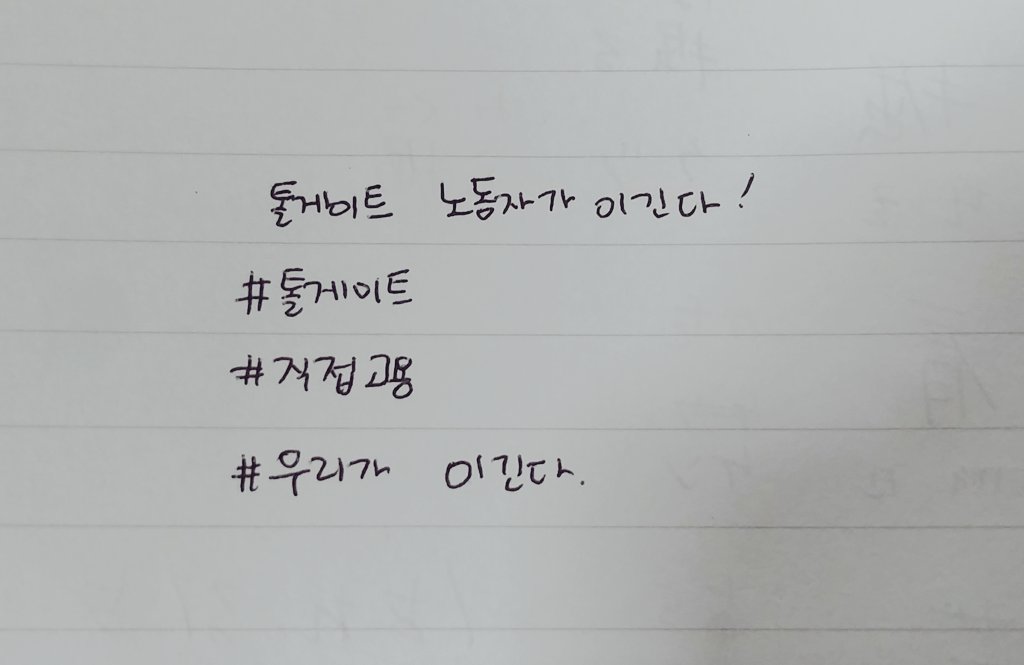 톨게이트 노동자가 이긴다!
#톨게이트
#직접고용
#우리가 이긴다.